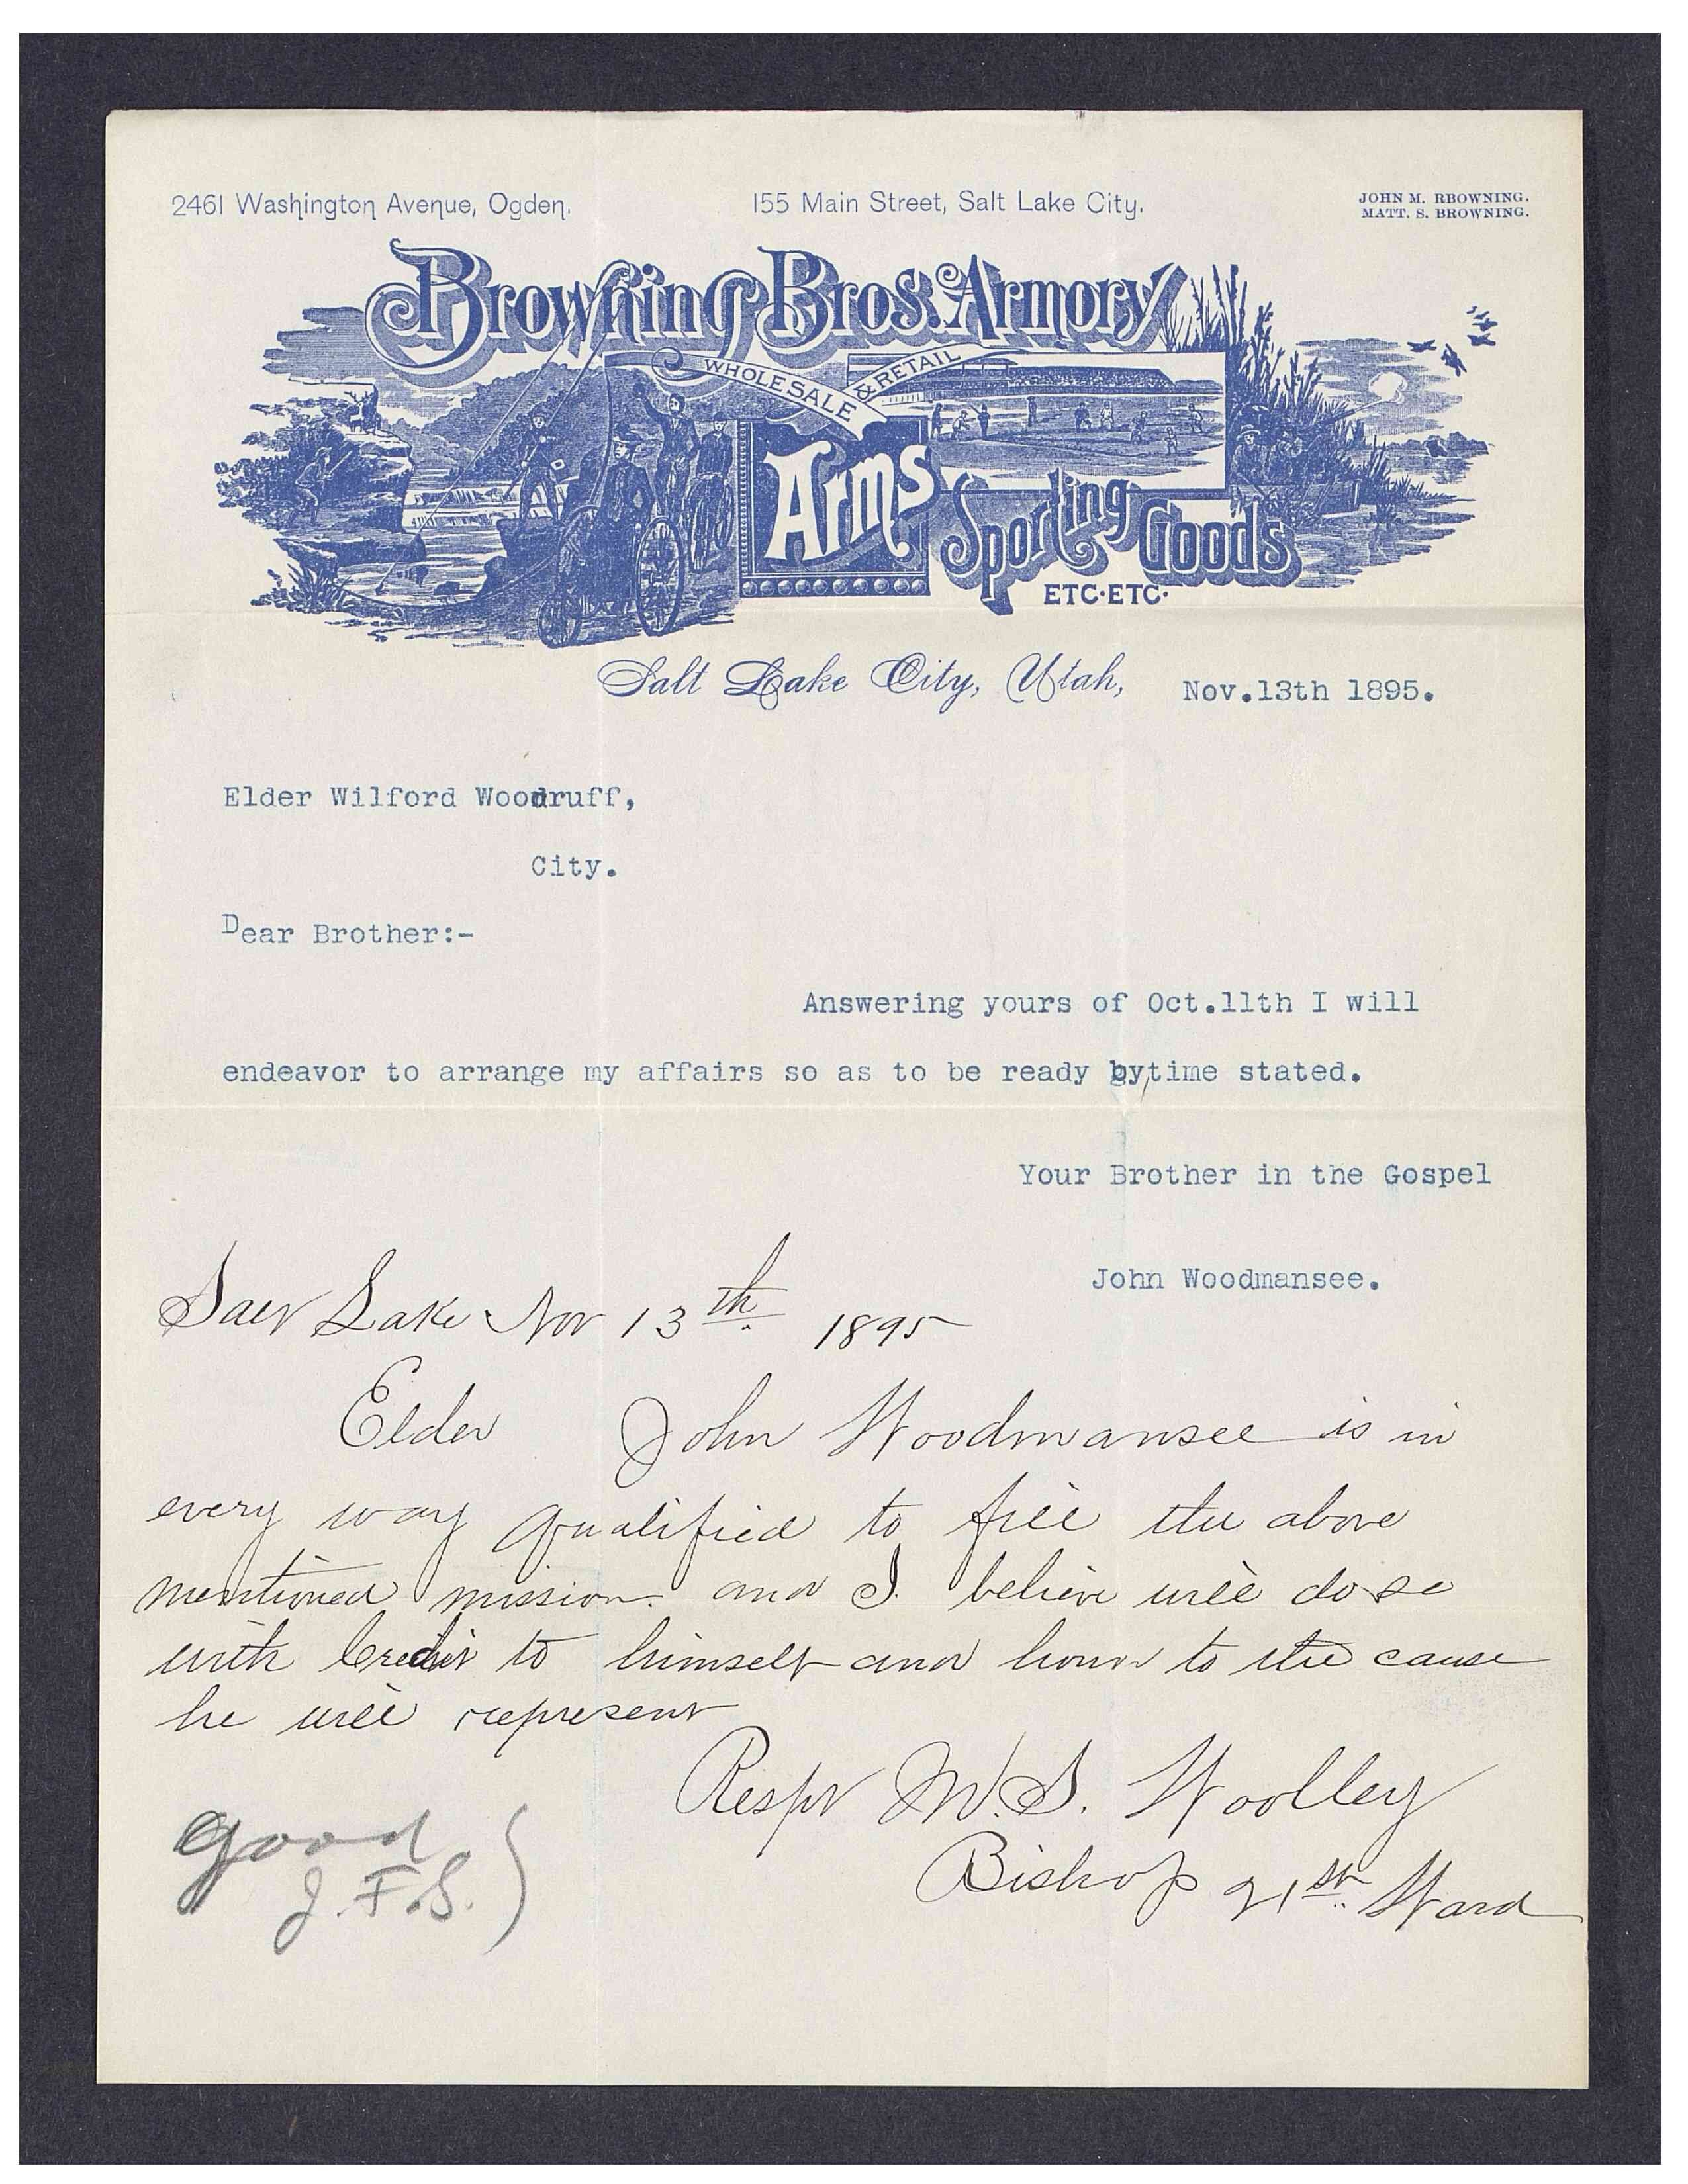 2461 Washington Avenue, Ogden.
155 Main Street, Salt Lake City.
JOHN M. RBOWNING.
MATT. S. BROWNING.
Browning Bros. Armory
WHOLESALE & RETAIL
Arms
Sporting Goods
ETC·ETC·
Salt Lake City, Utah, Nov.13th 1895.
Elder Wilford Woodruff,
City.
Dear Brother:-
Answering yours of Oct.11th I will
endeavor to arrange my affairs so as to be ready by time stated.
Your Brother in the Gospel
John Woodmansee.
Salt Lake Nov 13th 1895
Elder John Woodmansee is in
every way qualified to fill the above
mentioned mission. and I believe will do so
with Credit to himself and honor to the cause
he will represent
Respt M. S. Woolley
Bishop 21st Ward
good
J. F. S.)